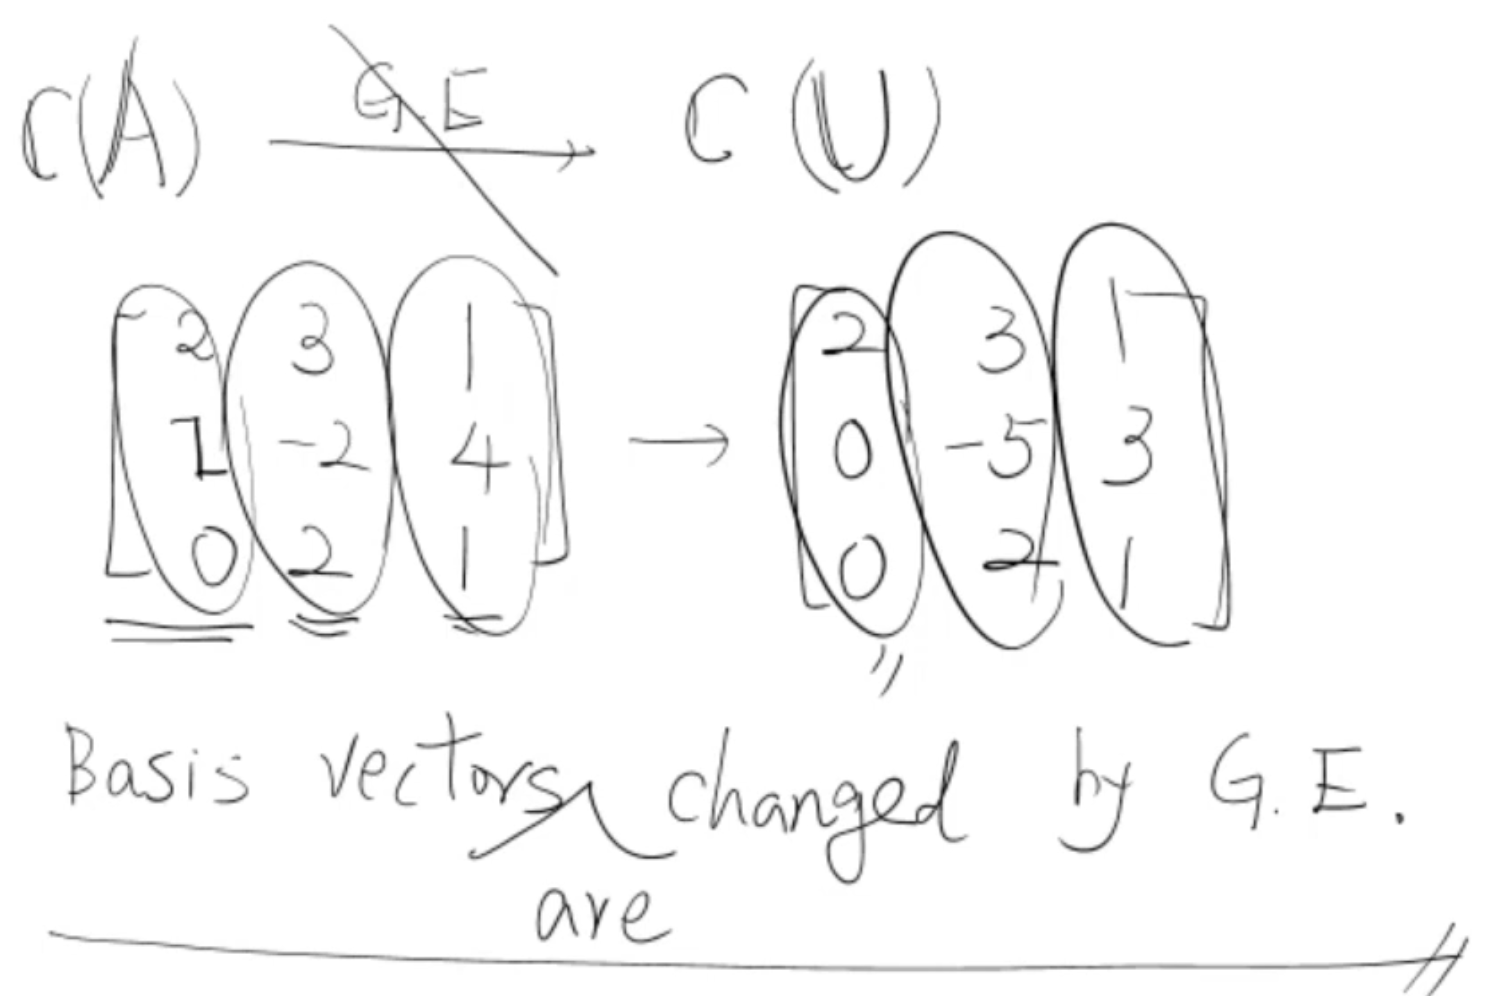 C(A) G.E → C(U)
[2 3 1 → [2 3 1
1 -2 4 0 -5 3
0 2 1] 0 2 1]
Basis vectors are changed by G.E.